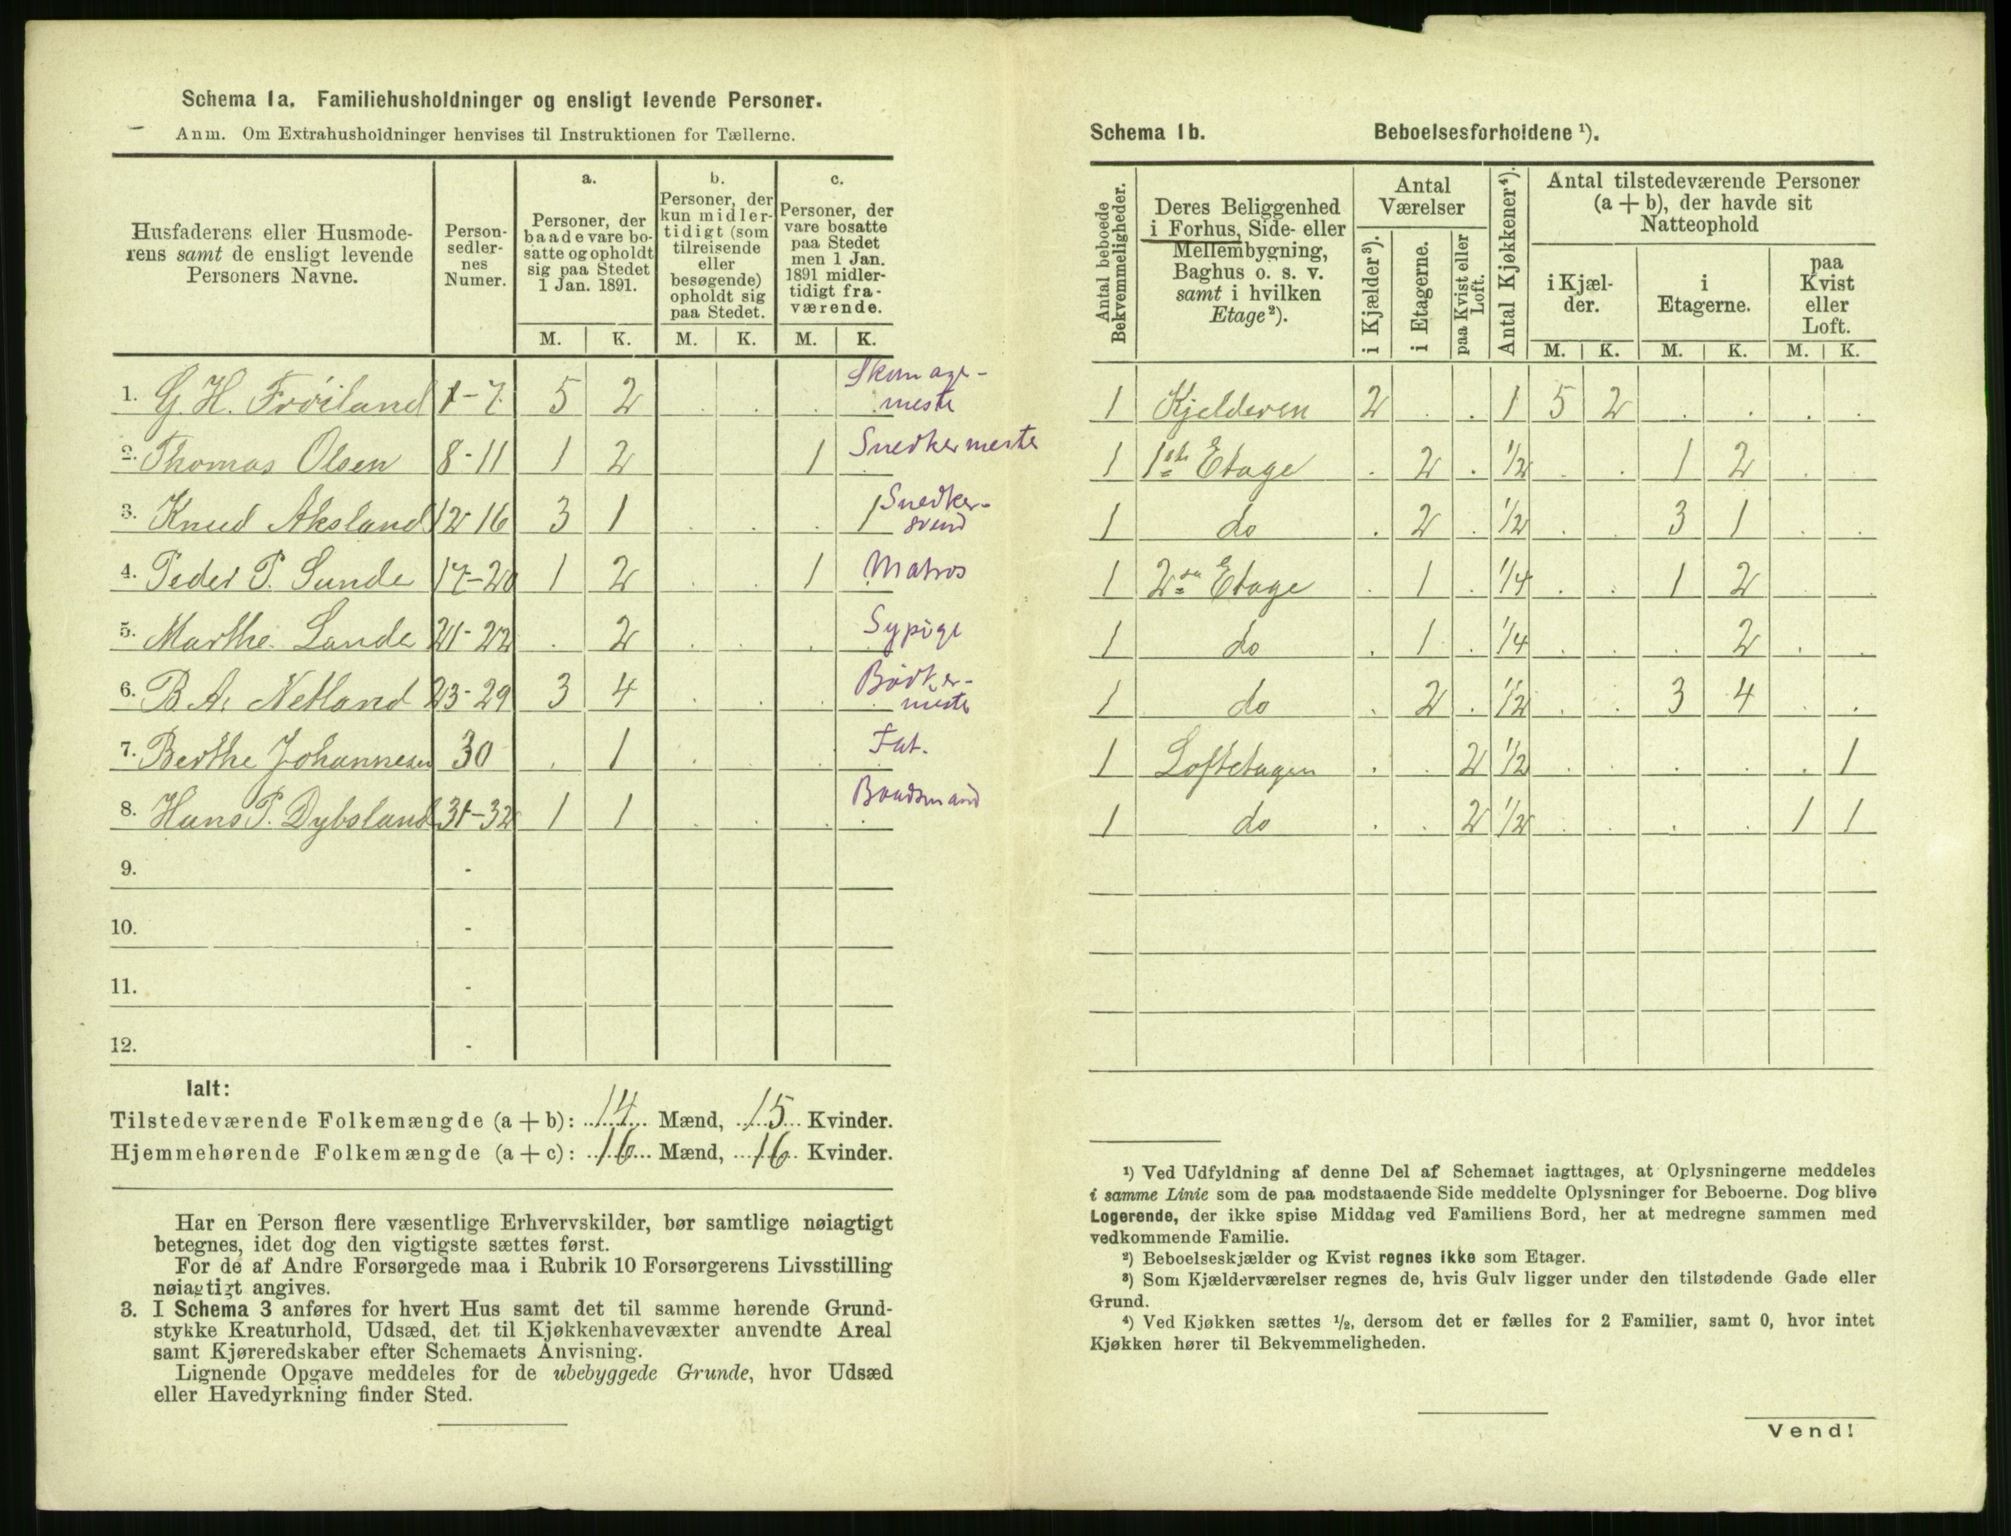 Schema 1a. Familiehusholdninger og ensligt levende Personer.
Anm. Om Extrahusholdninger henvises til Instruktionen for Tællerne.
Husfaderens eller Husmode-
rens samt de ensligt levende
Personers Navne.
Person-
sedler-
nes
Numer.
a.
Personer, der
baade vare bo-
satte og opholdt
sig paa Stedet
1 Jan. 1891.
b.
Personer, der
kun midler-
tidigt (som
tilreisende
eller
besøgende)
opholdt sig
paa Stedet.
c.
Personer, der
vare bosatte
paa Stedet
men 1 Jan.
1891 midler-
tidigt fra-
værende.
M. K. M. K. M. K.
1. G. H. Frøiland 1-7 5 2 . . . . Skomager-
meste
2. Thomas Olsen 8-11 1 2 . . 1 . Snedkermester
3. Knud Aksland 12-16 3 1 . . . 1 Snedker-
svend
4. Peder P. Sunde 17-20 1 2 . . 1 . Matros
5. Marthe Lande 21-22 . 2 . . . . Sypige
6. B. A. Netland 23-29 3 4 . . . . Bødker-
mester
7. Berthe Johannesen 30 . 1 . . . . Fat.
8. Hans P. Dybsland 31-32 1 1 . . . . Baadsmand
9. -
10. -
11. -
12. -
Ialt:
Tilstedeværende Folkemængde (a + b): 14 Mænd, 15 Kvinder.
Hjemmehørende Folkemængde (a + c): 16 Mænd, 16 Kvinder.
Har en Person flere væsentlige Erhvervskilder, bør samtlige nøiagtigt
betegnes, idet dog den vigtigste sættes først.
For de af Andre Forsørgede maa i Rubrik 10 Forsørgerens Livsstilling
nøiagtigt angives.
3. I Schema 3 anføres for hvert Hus samt det til samme hørende Grund-
stykke Kreaturhold, Udsæd, det til Kjøkkenhavevæxter anvendte Areal
samt Kjøreredskaber efter Schemaets Anvisning.
Lignende Opgave meddeles for de ubebyggede Grunde, hvor Udsæd
eller Havedyrkning finder Sted.
Schema 1b. Beboelsesforholdene ¹).
Antal beboede
Bekvemmeligheder.
Deres Beliggenhed
i Forhus, Side- eller
Mellembygning,
Baghus o. s. v.
samt i hvilken
Etage²).
Antal
Værelser
i Kjælder³).
i Etagerne.
paa Kvist eller
Loft.
Antal Kjøkkener⁴).
Antal tilstedeværende Personer
(a + b), der havde sit
Natteophold
i Kjæl-
der.
i
Etagerne.
paa
Kvist
eller
Loft.
M. K. M. K. M. K.
1 Kjelderen 2 . . 1 5 2 . . . .
1 1ste Etage . 2 . 1/2 . . 1 2 . .
1 do . 2 . 1/2 . . 3 1 . .
1 2den Etage . 1 . 1/4 . . 1 2 . .
1 do . 1 . 1/4 . . . 2 . .
1 do . 2 . 1/2 . . 3 4 . .
1 Loftetagen . . 2 1/2 . . . . . 1
1 do . . 2 1/2 . . . . 1 1
¹) Ved Udfyldning af denne Del af Schemaet iagttages, at Oplysningerne meddeles
i samme Linie som de paa modstaaende Side meddelte Oplysninger for Beboerne. Dog blive
Logerende, der ikke spise Middag ved Familiens Bord, her at medregne sammen med
vedkommende Familie.
²) Beboelseskjælder og Kvist regnes ikke som Etager.
³) Som Kjælderværelser regnes de, hvis Gulv ligger under den tilstødende Gade eller
Grund.
⁴) Ved Kjøkken sættes 1/2, dersom det er fælles for 2 Familier, samt 0, hvor intet
Kjøkken hører til Bekvemmeligheden.
Vend!